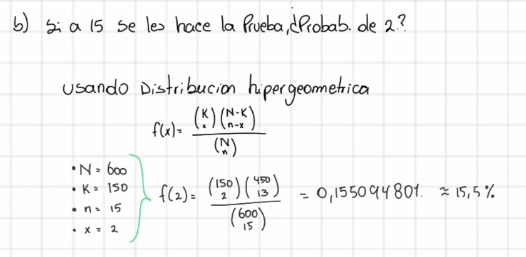 b) Si a 15 se les hace la Prueba, ¿Probab. de 2?
Usando Distribucion hipergeometrica
f(x) = (K x)(N-K n-x) / (N n)
• N = 600
• K = 150
• n = 15
• x = 2
f(2) = (150 2)(450 13) / (600 15) = 0,155094801. ≈ 15,5%